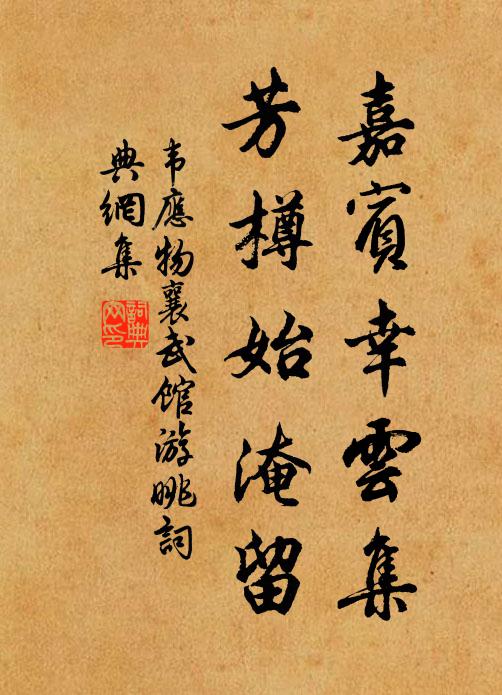 嘉賓幸雲集
芳樽始淹留
韦應物襄武館游眺詞
典網集
詞典
网印